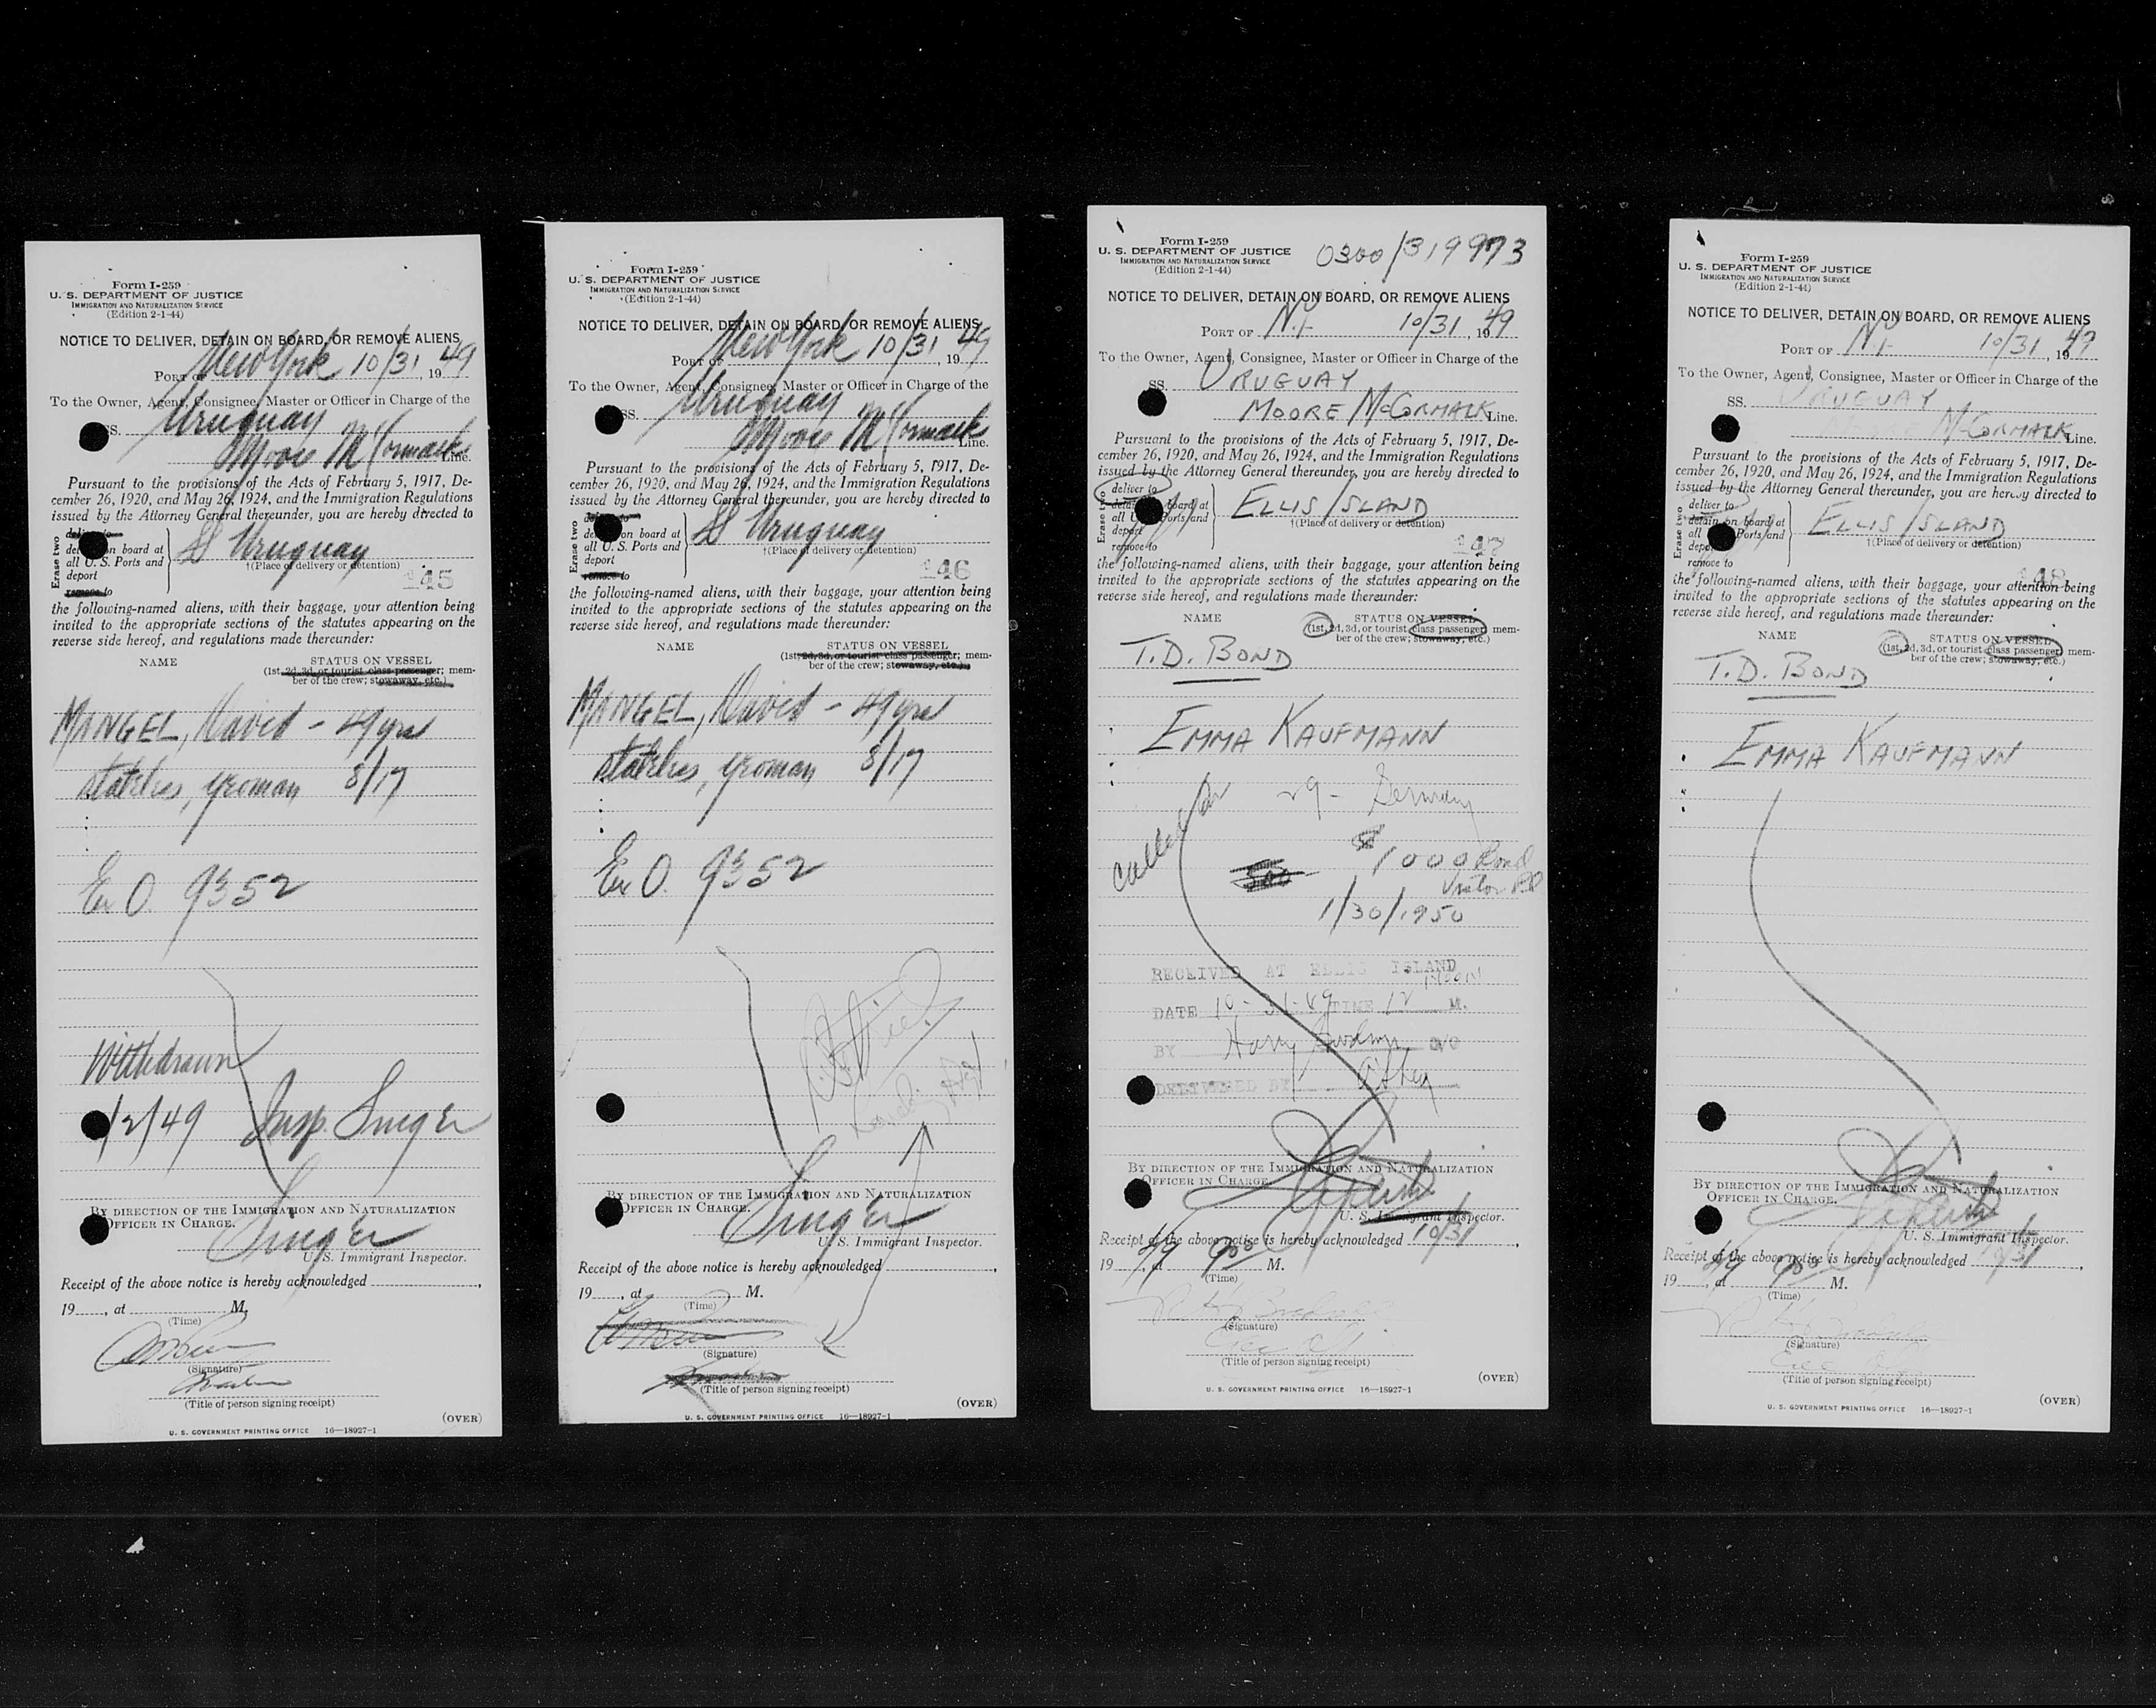 Form I-259
U. S. DEPARTMENT OF JUSTICE
IMMIGRATION AND NATURALIZATION SERVICE
(Edition 2-1-44)
NOTICE TO DELIVER, DETAIN ON BOARD, OR REMOVE ALIENS
PORT OF New York 10/31, 1949
To the Owner, Agent, Consignee, Master or Officer in Charge of the
SS. Uruguay
Moore McCormack Line.
Pursuant to the provisions of the Acts of February 5, 1917, De-
cember 26, 1920, and May 26, 1924, and the Immigration Regulations
issued by the Attorney General thereunder, you are hereby directed to
Erase two
deliver to
detain on board at
all U. S. Ports and
deport
remove to
SS Uruguay
†(Place of delivery or detention)
145
the following-named aliens, with their baggage, your attention being
invited to the appropriate sections of the statutes appearing on the
reverse side hereof, and regulations made thereunder:
NAME STATUS ON VESSEL
(1st, 2d, 3d, or tourist class passenger; mem-
ber of the crew; stowaway, etc.)
MANGEL, David - 49 yrs
yeoman 8/17
Ex O. 9352
Withdrawn
/2/49 Insp. Singer
BY DIRECTION OF THE IMMIGRATION AND NATURALIZATION
OFFICER IN CHARGE.
Singer
U. S. Immigrant Inspector.
Receipt of the above notice is hereby acknowledged
19 , at M.
(Time)
(Signature)
(Title of person signing receipt)
(OVER)
U. S. GOVERNMENT PRINTING OFFICE 16—18927-1
Form I-259
U. S. DEPARTMENT OF JUSTICE
IMMIGRATION AND NATURALIZATION SERVICE
(Edition 2-1-44)
NOTICE TO DELIVER, DETAIN ON BOARD, OR REMOVE ALIENS
PORT OF New York 10/31, 1949
To the Owner, Agent, Consignee, Master or Officer in Charge of the
SS. Uruguay
Moore McCormack Line.
Pursuant to the provisions of the Acts of February 5, 1917, De-
cember 26, 1920, and May 26, 1924, and the Immigration Regulations
issued by the Attorney General thereunder, you are hereby directed to
Erase two
deliver to
detain on board at
all U. S. Ports and
deport
remove to
SS Uruguay
†(Place of delivery or detention)
146
the following-named aliens, with their baggage, your attention being
invited to the appropriate sections of the statutes appearing on the
reverse side hereof, and regulations made thereunder:
NAME STATUS ON VESSEL
(1st, 2d, 3d, or tourist class passenger; mem-
ber of the crew; stowaway, etc.)
MANGEL, David - 49 yrs
yeoman 8/17
Ex O. 9352
BY DIRECTION OF THE IMMIGRATION AND NATURALIZATION
OFFICER IN CHARGE.
Singer
U. S. Immigrant Inspector.
Receipt of the above notice is hereby acknowledged
19 , at M.
(Time)
(Signature)
(Title of person signing receipt)
(OVER)
U. S. GOVERNMENT PRINTING OFFICE 16—18927-1
Form I-259
U. S. DEPARTMENT OF JUSTICE
IMMIGRATION AND NATURALIZATION SERVICE
(Edition 2-1-44)
0300/319973
NOTICE TO DELIVER, DETAIN ON BOARD, OR REMOVE ALIENS
PORT OF N.Y. 10/31, 1949
To the Owner, Agent, Consignee, Master or Officer in Charge of the
SS. URUGUAY
MOORE McCORMACK Line.
Pursuant to the provisions of the Acts of February 5, 1917, De-
cember 26, 1920, and May 26, 1924, and the Immigration Regulations
issued by the Attorney General thereunder, you are hereby directed to
Erase two
deliver to
detain on board at
all U. S. Ports and
deport
remove to
ELLIS ISLAND
†(Place of delivery or detention)
147
the following-named aliens, with their baggage, your attention being
invited to the appropriate sections of the statutes appearing on the
reverse side hereof, and regulations made thereunder:
NAME STATUS ON VESSEL
(1st, 2d, 3d, or tourist class passenger; mem-
ber of the crew; stowaway, etc.)
T.D. BOND
EMMA KAUFMANN
29 - Germany
$1000 Bond
500 Visitor
1/30/1950
RECEIVED AT ELLIS ISLAND
DATE 10-31-49 TIME 12 M.
BY Harry
DELIVERED BY
BY DIRECTION OF THE IMMIGRATION AND NATURALIZATION
OFFICER IN CHARGE.
U. S. Immigrant Inspector.
Receipt of the above notice is hereby acknowledged 10/31,
1949, at 900 M.
(Time)
(Signature)
(Title of person signing receipt)
(OVER)
U. S. GOVERNMENT PRINTING OFFICE 16—18927-1
Form I-259
U. S. DEPARTMENT OF JUSTICE
IMMIGRATION AND NATURALIZATION SERVICE
(Edition 2-1-44)
NOTICE TO DELIVER, DETAIN ON BOARD, OR REMOVE ALIENS
PORT OF N.Y. 10/31, 1949
To the Owner, Agent, Consignee, Master or Officer in Charge of the
SS. URUGUAY
MOORE McCORMACK Line.
Pursuant to the provisions of the Acts of February 5, 1917, De-
cember 26, 1920, and May 26, 1924, and the Immigration Regulations
issued by the Attorney General thereunder, you are hereby directed to
Erase two
deliver to
detain on board at
all U. S. Ports and
deport
remove to
ELLIS ISLAND
†(Place of delivery or detention)
148
the following-named aliens, with their baggage, your attention being
invited to the appropriate sections of the statutes appearing on the
reverse side hereof, and regulations made thereunder:
NAME STATUS ON VESSEL
(1st, 2d, 3d, or tourist class passenger; mem-
ber of the crew; stowaway, etc.)
T.D. BOND
EMMA KAUFMANN
BY DIRECTION OF THE IMMIGRATION AND NATURALIZATION
OFFICER IN CHARGE.
U. S. Immigrant Inspector.
Receipt of the above notice is hereby acknowledged 10/31,
1949, at 900 M.
(Time)
(Signature)
(Title of person signing receipt)
(OVER)
U. S. GOVERNMENT PRINTING OFFICE 16—18927-1